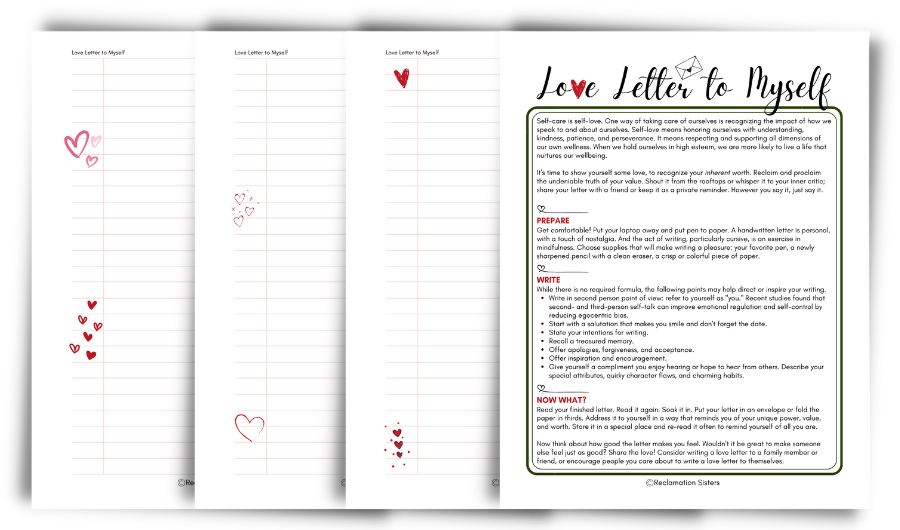 Love Letter to Myself
Love Letter to Myself
Love Letter to Myself
Love Letter to Myself
Self-care is self-love. One way of taking care of ourselves is recognizing the impact of how we
speak to and about ourselves. Self-love means honoring ourselves with understanding,
kindness, patience, and perseverance. It means respecting and supporting all dimensions of
our own wellness. When we hold ourselves in high esteem, we are more likely to live a life that
nurtures our wellbeing.
It's time to show yourself some love, to recognize your inherent worth. Reclaim and proclaim
the undeniable truth of your value. Shout it from the rooftops or whisper it to your inner critic;
share your letter with a friend or keep it as a private reminder. However you say it, just say it.
PREPARE
Get comfortable! Put your laptop away and put pen to paper. A handwritten letter is personal,
with a touch of nostalgia. And the act of writing, particularly cursive, is an exercise in
mindfulness. Choose supplies that will make writing a pleasure: your favorite pen, a newly
sharpened pencil with a clean eraser, a crisp or colorful piece of paper.
WRITE
While there is no required formula, the following points may help direct or inspire your writing.
• Write in second person point of view: refer to yourself as "you." Recent studies found that
second- and third-person self-talk can improve emotional regulation and self-control by
reducing egocentric bias.
• Start with a salutation that makes you smile and don't forget the date.
• State your intentions for writing.
• Recall a treasured memory.
• Offer apologies, forgiveness, and acceptance.
• Offer inspiration and encouragement.
• Give yourself a compliment you enjoy hearing or hope to hear from others. Describe your
special attributes, quirky character flaws, and charming habits.
NOW WHAT?
Read your finished letter. Read it again. Soak it in. Put your letter in an envelope or fold the
paper in thirds. Address it to yourself in a way that reminds you of your unique power, value,
and worth. Store it in a special place and re-read it often to remind yourself of all you are.
Now think about how good the letter makes you feel. Wouldn't it be great to make someone
else feel just as good? Share the love! Consider writing a love letter to a family member or
friend, or encourage people you care about to write a love letter to themselves.
©Re
©Re
©Re
©Reclamation Sisters